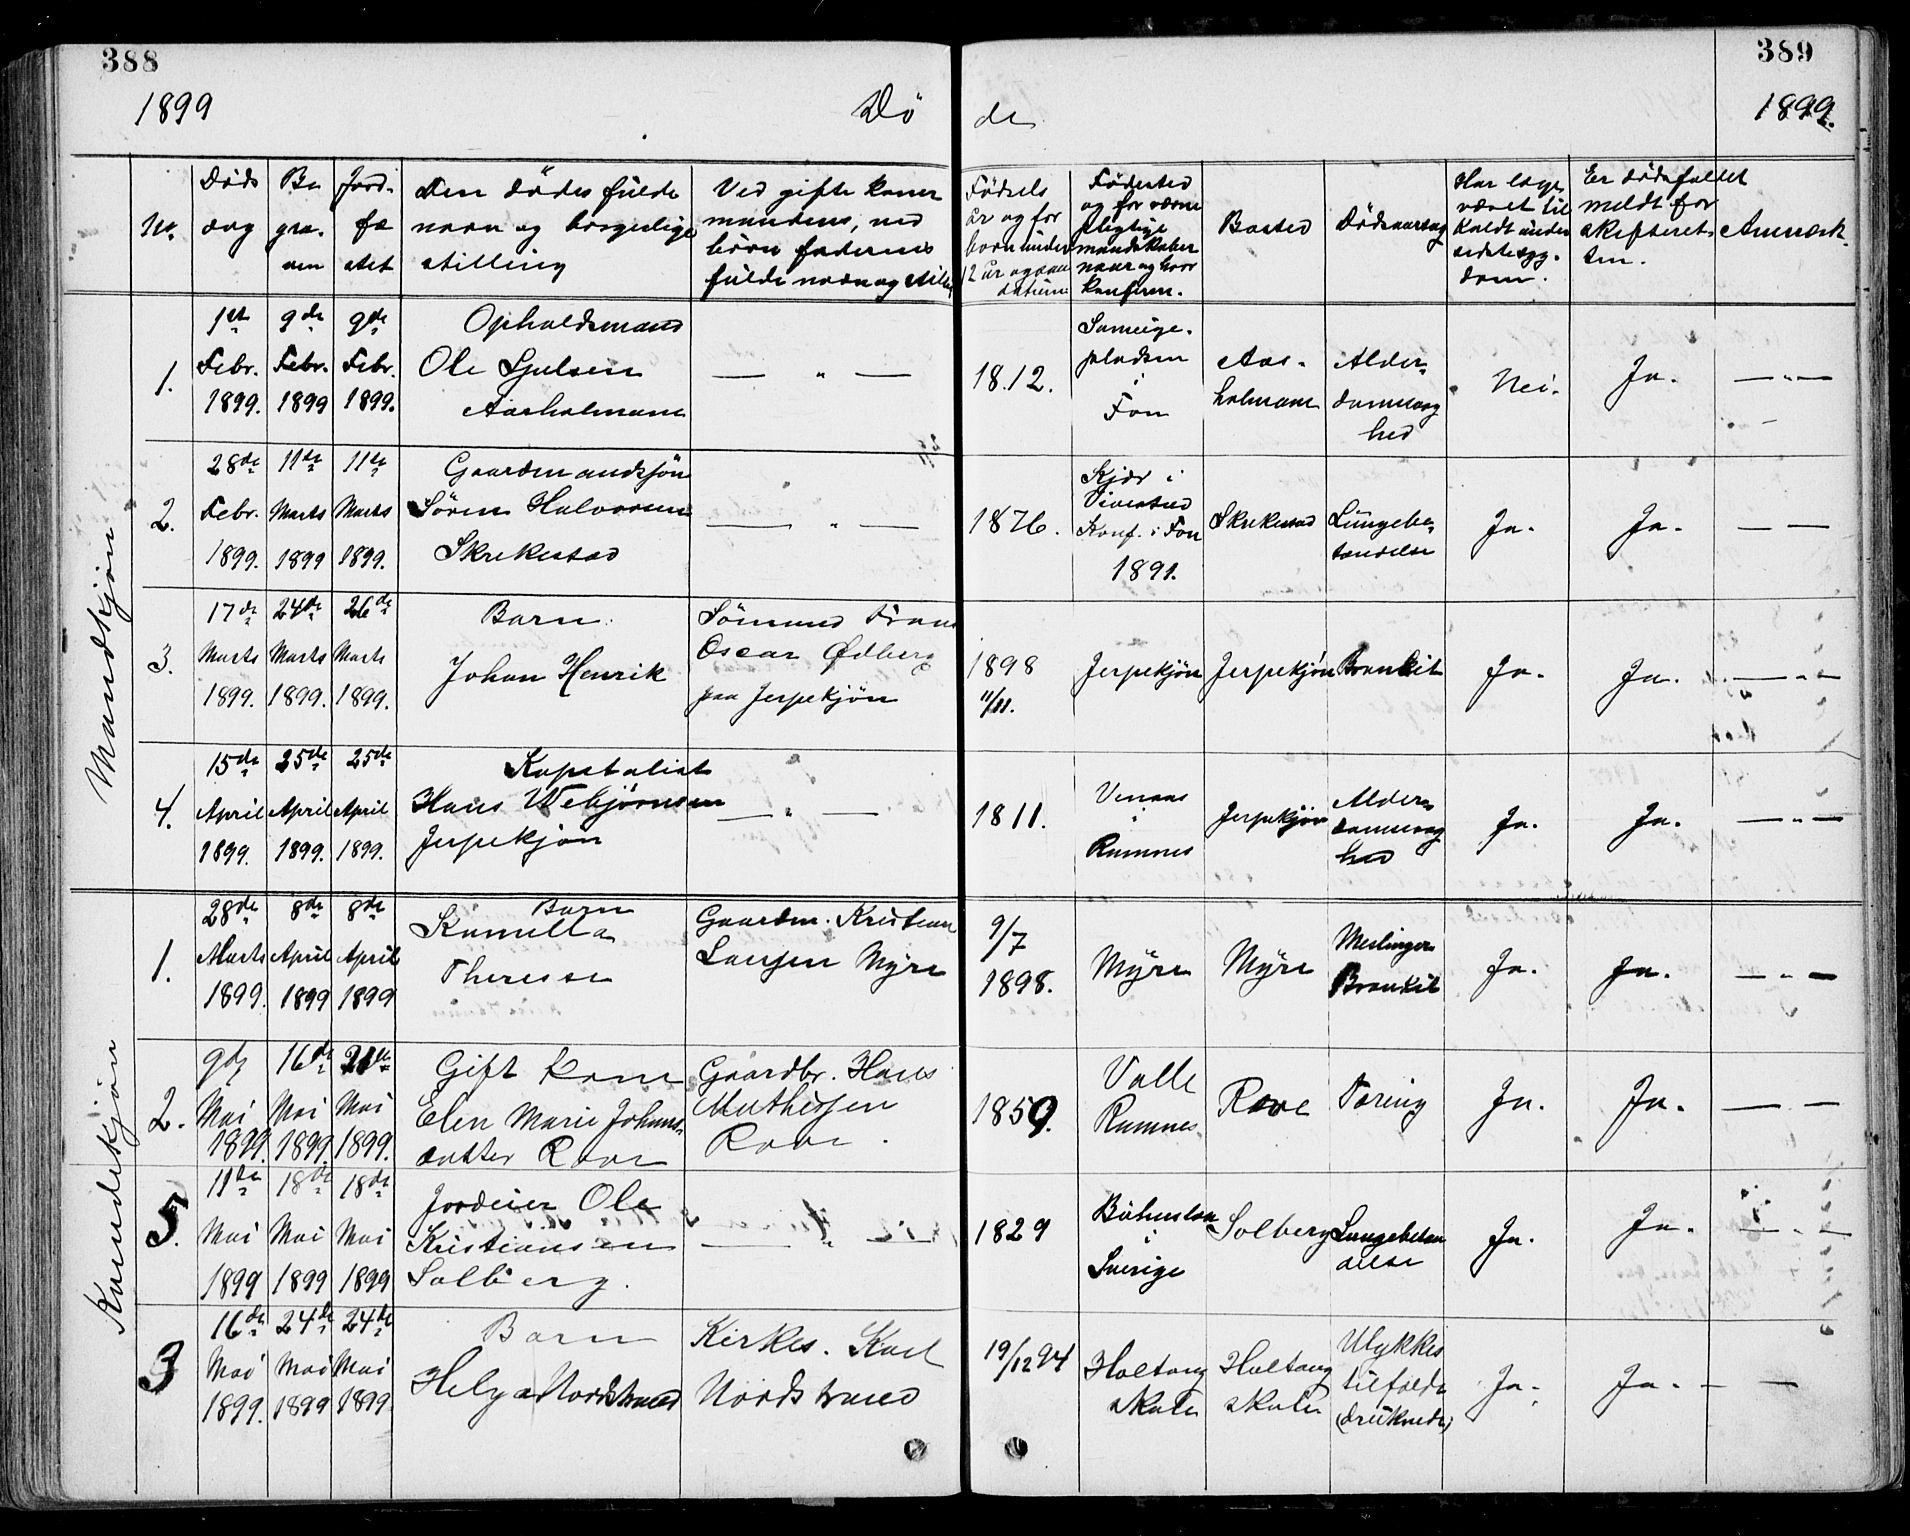 388
389
1899
Dö
de
1899.
No.
Døds
dag
Be
gra.
Jord.
fæ
stet
Den dödes fulde
navn og borgerlige
stilling
Ved gifte koner
mandens, ved
börn faderns
fulde navn og
Födsels
år og for
börn under
12 år
datum
Födested
og for værne
pligtige
mandskaber
konfirm.
Bosted
Dödsaarsag
Har læge
været til
kaldt under
sidste syg.
dom.
Er dödsfaldet
meldt for
skifteret
ten.
Anmærk.
Mandkjøn
1.
1st
Febr.
1899.
9de
Febr.
1899
9de
Febr.
1899.
Opholdsmand
Ole Gulsen
Aasholmane
— " —
1812.
Sameige.
pladsen
i
Fon
Aas-
holmane
Alder-
domssvag
hed
Nei.
Ja.
— " —
2.
28de
Febr.
1899.
11de
Marts
1899
11de
Marts
1899.
Gaardmandssön
Sören Halvorsen
Skrekestad
— " —
1876.
Kjær i
Vivestad
Konf. i Fon
1891.
Skrekestad
Lungebe-
tændelse
Ja.
Ja.
— —
3.
17de
Marts
1899.
24de
Marts
1899.
26de
Marts
1899.
Barn
Johan Henrik
Sömund Frans
Oscar Ødberg
paa Jerpekjøn
1898
11/11.
Jerpekjøn
Jerpekjøn
Bronkit
Ja.
Ja.
— " —
4.
15de
April
1899.
25de
April
1899.
25de
April
1899.
Kapitalist
Hans Webjørnsen
Jerpekjøn
— " —
1811.
Venaas
i
Ramnes
Jerpekjøn
Alder-
domssvag
hed
Ja.
Ja.
— " —
Kvindekjøn
1.
28de
Marts
1899.
8de
April
1899
8de
April
1899
Barn
Kamilla
Therese
Gaardm. Kristian
Larsen Myre
9/7
1898.
Myre
Myre
Meslinger
Bronkit
Ja.
Ja.
— " —
2.
9de
Mai
1899.
16de
Mai
1899.
Mai
1899.
Gift kone
Elen Marie Johans-
datter Rove
Gaardbr. Hans
Mathissen
Rove
1859.
Valle
Ramnes
Rove
Tæring
Ja.
Ja.
— . —
5.
11de
Mai
1899
18de
Mai
1899
18de
Mai
1899
Jordeier Ole
Kristiansen
Solberg.
— " —
1829
Båhuslen
i
Sverige
Solberg
Lungebetæn
delse
Ja.
Ja.
— . —
3
16de
Mai
1899.
24de
Mai
1899
24de
Mai
1899
Barn
Helga Nordstrand
Kirkes. Karl
Nordstrand
19/12 94
Holtung
skole
Holtung
skole
Ulykkes
tilfælde
(druknede)
Ja.
Ja.
— —